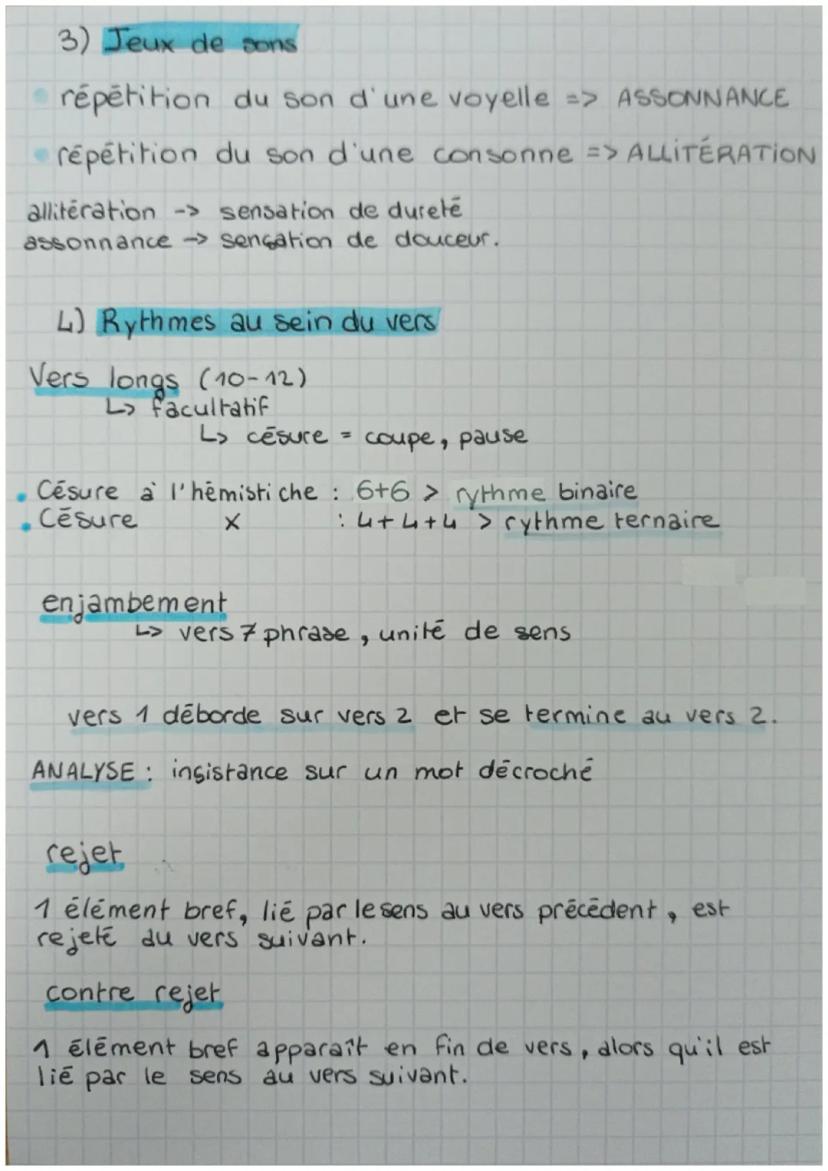 3) Jeux de sons
répétition du son d'une voyelle => ASSONNANCE
répétition du son d'une consonne => ALLITÉRATION
allitération -> sensation de dureté
assonnance -> sensation de douceur.
4) Rythmes au sein du vers
Vers longs (10-12)
↳ facultatif
↳ césure = coupe, pause
• Césure à l'hémistiche : 6+6 > rythme binaire
• Césure x : 4+4+4 > rythme ternaire
enjambement
↳ vers ≠ phrase, unité de sens
vers 1 déborde sur vers 2 et se termine au vers 2.
ANALYSE : insistance sur un mot décroché
rejet
1 élément bref, lié par le sens au vers précédent, est
rejeté au vers suivant.
contre rejet
1 élément bref apparaît en fin de vers, alors qu'il est
lié par le sens au vers suivant.